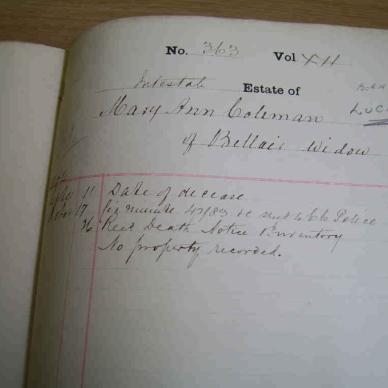 No. 363 Vol XII
Intestate Estate of
Mary Ann Coleman
of Bellair Widow
11 Date of decease
17 minute 42/83 Police
26 Recd Death Notice Inventory
No property recorded.